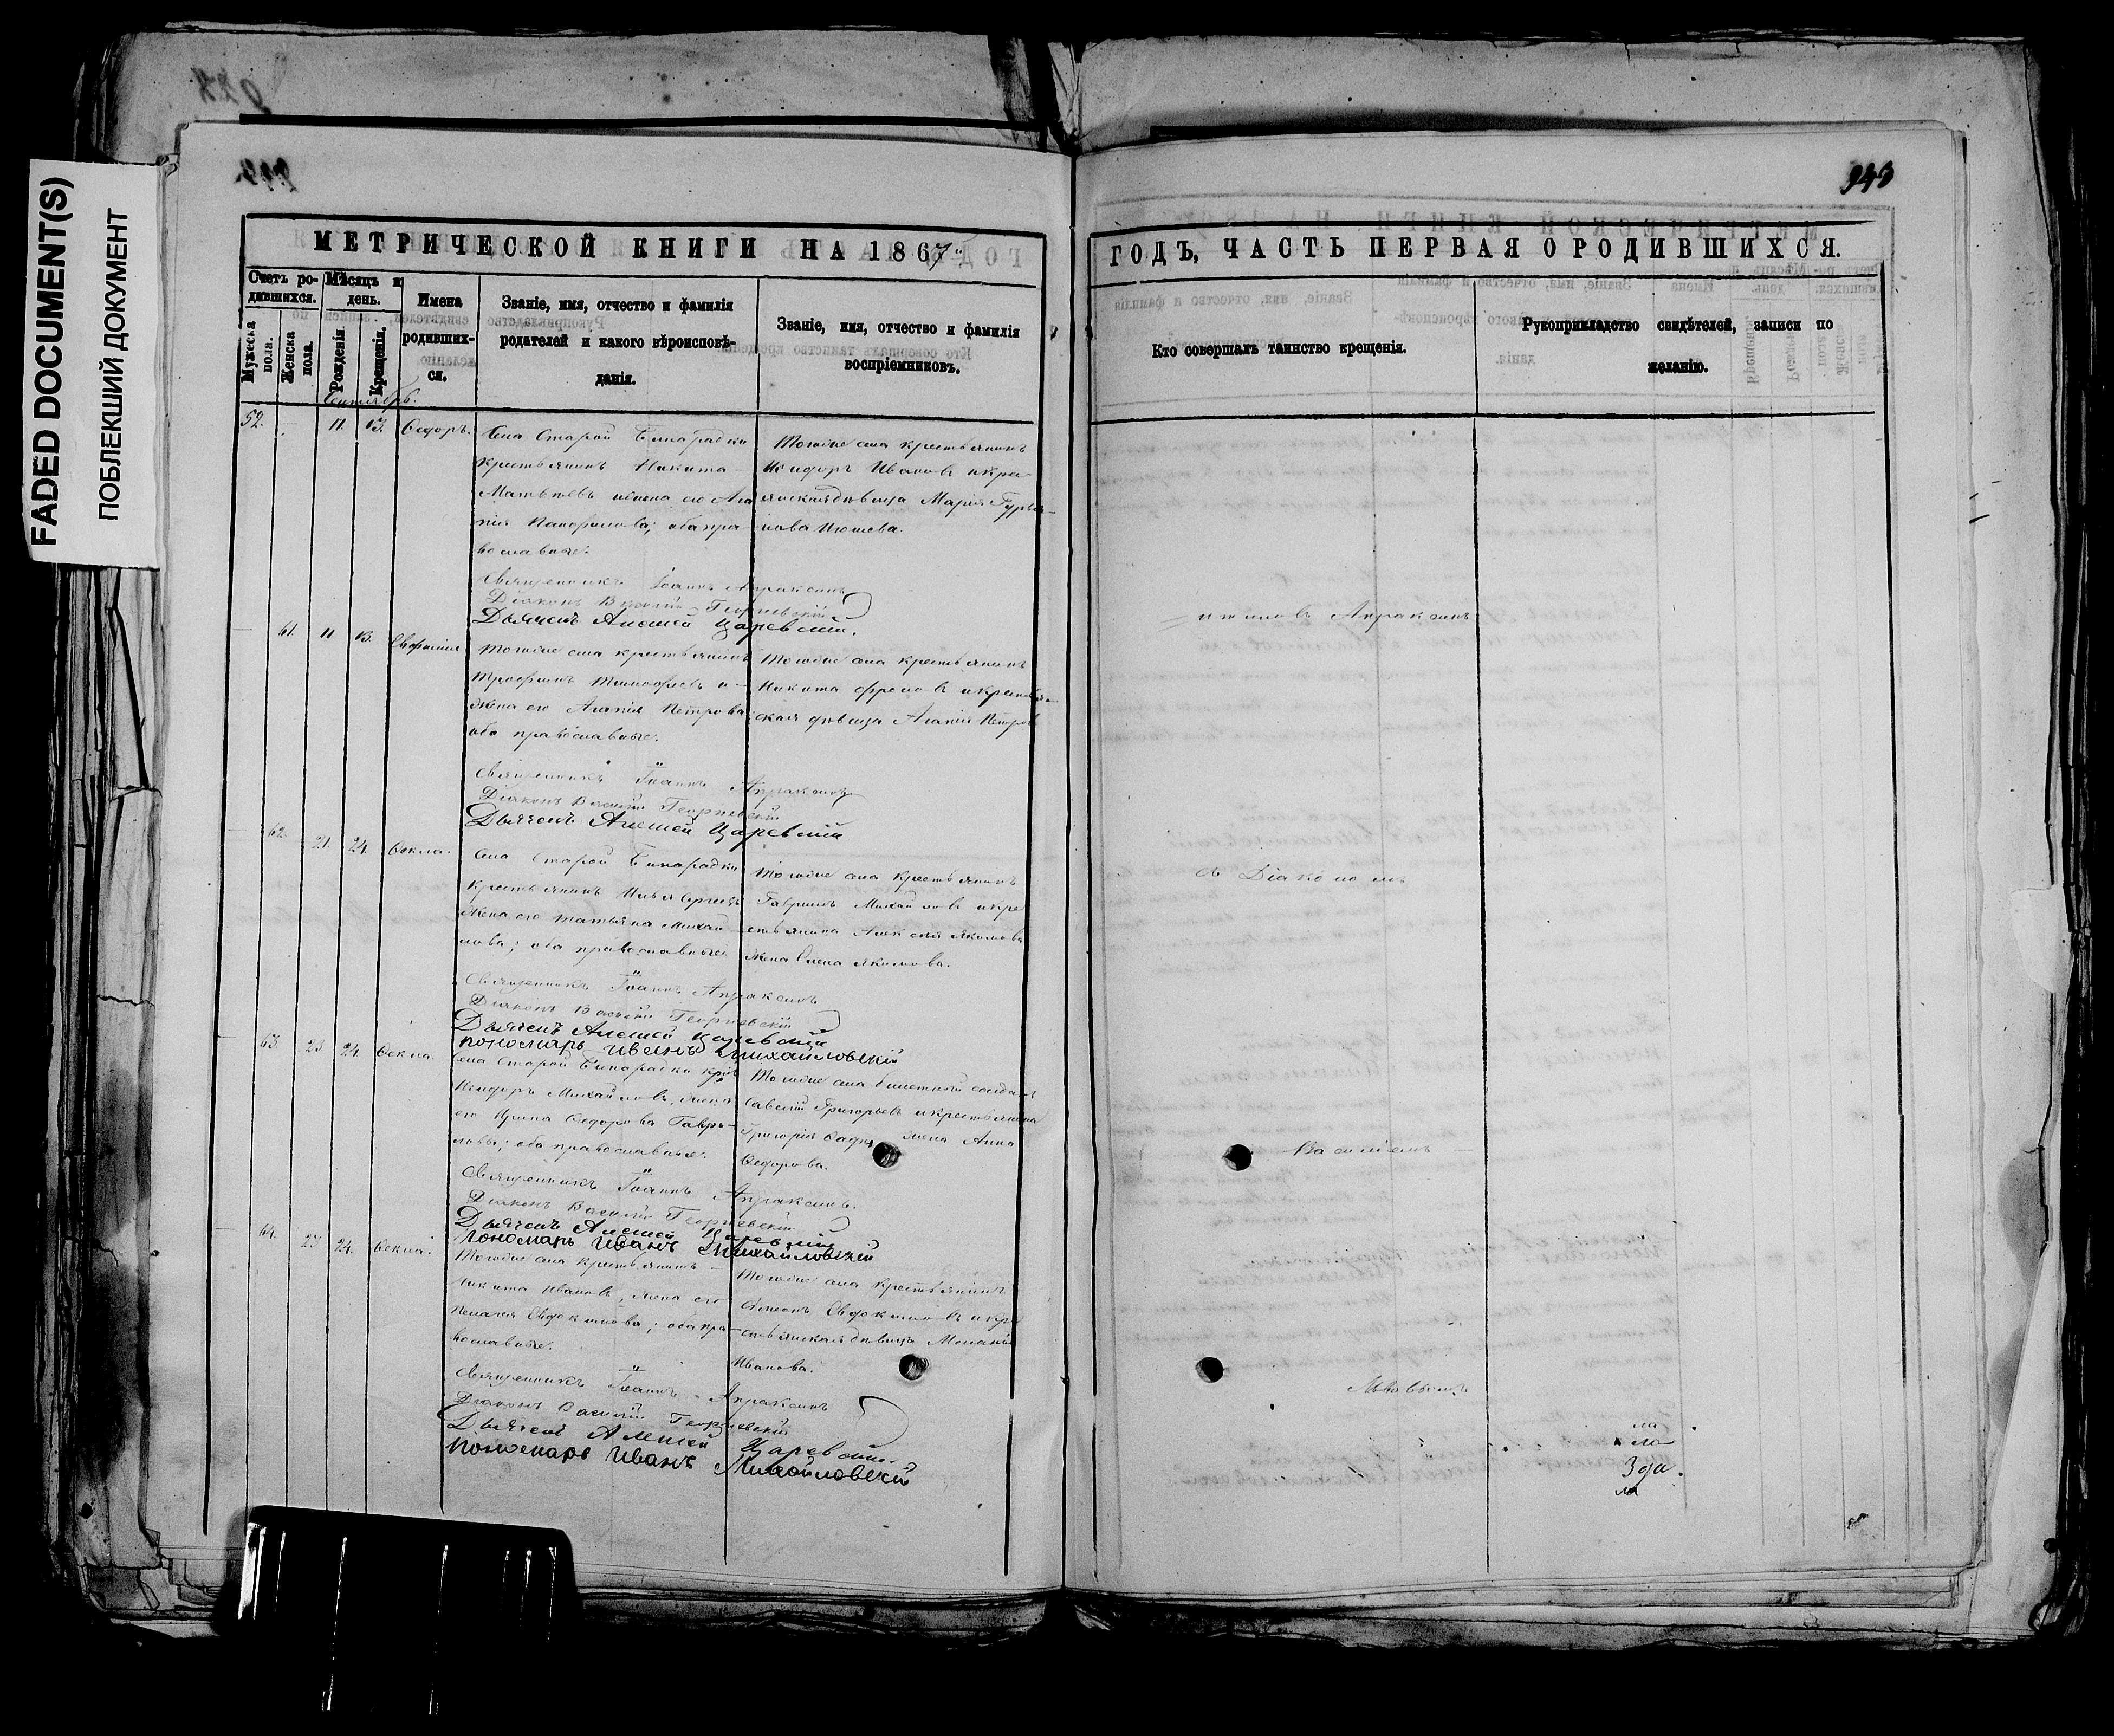 FADED DOCUMENT(S)
ПОБЛЕКШИЙ ДОКУМЕНТ
943
МЕТРИЧЕСКОЙ КНИГИ НА 1867
ГОДЪ, ЧАСТЬ ПЕРВАЯ О РОДИВШИХСЯ.
Счетъ ро-
дившихся.
Мужеска
пола.
Женска
пола.
Мѣсяцъ и
день.
Рожденія.
Крещенія.
Имена
родивших-
ся.
Званіе, имя, отчество и фамилія
родателей и какого вѣроисповѣ-
данія.
Званіе, имя, отчество и фамилія
воспріемниковъ.
Кто совершалъ таинство крещенія.
Рукоприкладство свидѣтелей, записи по
желанію.
Сентябрь.
52. 11. 13. Ѳедоръ.
Села Старой Бинарадки
крестьянинъ Никита
Матвѣевъ и жена его Ага
пія Панфилова; оба пра
вославные.
Тогоже села крестьянинъ
Исидоръ Ивановъ и кре
янская дѣвица Марія Гурья-
нова
Священникъ Іоаннъ Апраксинъ
Діаконъ Василій Георгіевскій
Дьячекъ Алексей Царевскій.
61. 11 13. Евфимія
Тогоже села крестьянинъ
Трофимъ Тимофеевъ и
жена его Агапія Петрова;
оба православные.
Тогоже села крестьянинъ
Никита Фроловъ и крестьян
ская дѣвица Агапія Петров
Священникъ Іоаннъ Апраксинъ
Діаконъ Василій Георгіевскій
Дьячекъ Алексей Царевскій
62. 21. 24. Ѳекла.
Села Старой Бинарадки
крестьянинъ Илья Сергеевъ
жена его Татьяна Михай
лова; оба православные.
Тогоже села крестьянинъ
Гавріилъ Михайловъ и кре
стьянина Алексѣя Якимова
жена Елена Якимова.
Священникъ Іоаннъ Апраксинъ
Діаконъ Василій Георгіевскій
Дьячекъ Алексей Царевскій
пономарь Иванъ Михайловскій
63. 23 24. Ѳекла.
Села Старой Бинарадки
Исидоръ Михайловъ, жена
его Ирина Ѳедорова Гаври-
лова; оба православные.
Тогоже села билетный солдатъ
Савелій Григорьевъ и крестьянина
Григорія жена Анна
Ѳедорова.
Священникъ Іоаннъ Апраксинъ.
Діаконъ Василій Георгіевскій
Дьячекъ Алексей Царевскій
пономарь Иванъ Михайловскій
64. 23 24. Ѳекла.
Тогоже села крестьянинъ
Никита Ивановъ, жена его
Пелагія Евдокимова; оба пра-
вославные.
Тогоже села крестьянинъ
Евдокимовъ и кре
стьянская дѣвица Меланья
Иванова.
Священникъ Іоаннъ Апраксинъ
Діаконъ Василій Георгіевскій
Дьячекъ Алексей Царевскій
пономарь Иванъ Михайловскій
Апраксинъ
съ Діакономъ
Василіемъ